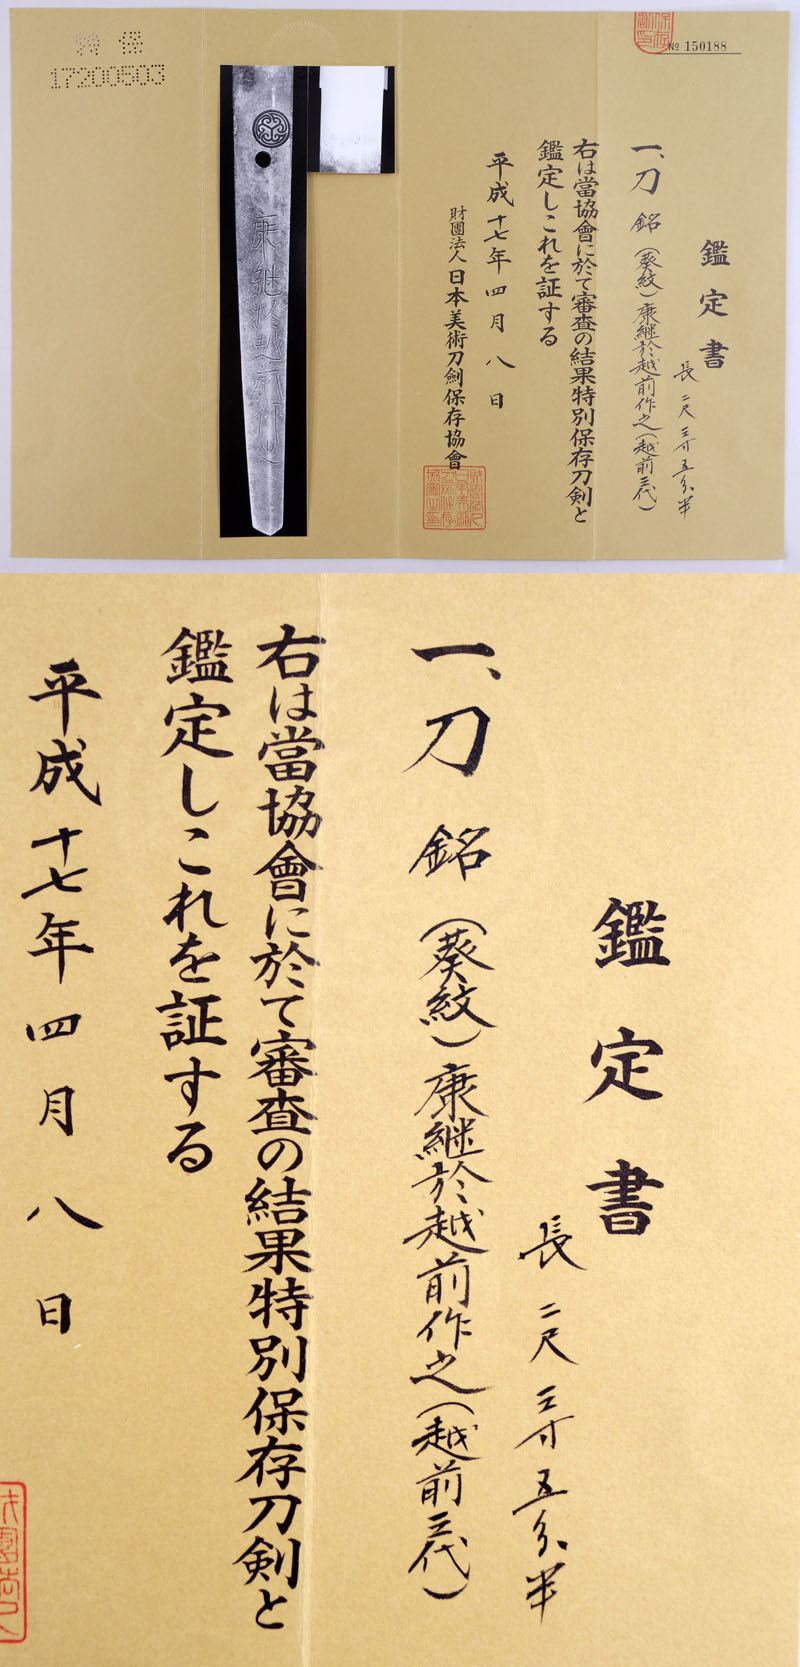 特 保
17200503
康継於越前作之
No 150188
鑑定書
長 二尺三寸五分半
一、刀 銘 (葵紋) 康継於越前作之 (越前三代)
右は當協會に於て審査の結果特別保存刀剣と
鑑定しこれを証する
平成十七年四月八日
財團法人 日本美術刀劍保存協會
鑑定書
長 二尺三寸五分半
一、刀 銘 (葵紋) 康継於越前作之 (越前三代)
右は當協會に於て審査の結果特別保存刀剣と
鑑定しこれを証する
平成十七年四月八日